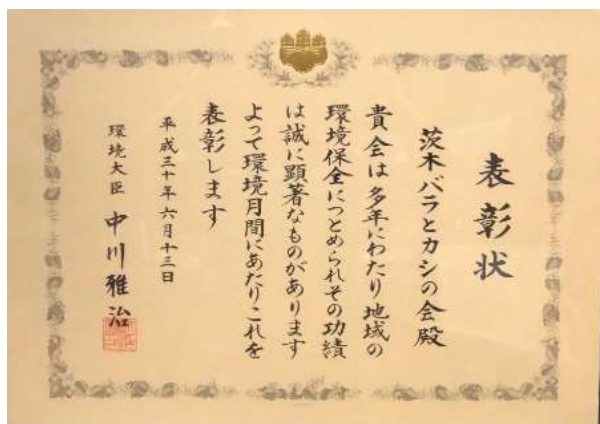 表彰状
茨木バラとカシの会殿
貴会は多年にわたり地域の
環境保全につとめられその功績
は誠に顕著なものがあります
よって環境月間にあたりこれを
表彰します
平成三十年六月十三日
環境大臣 中川雅治